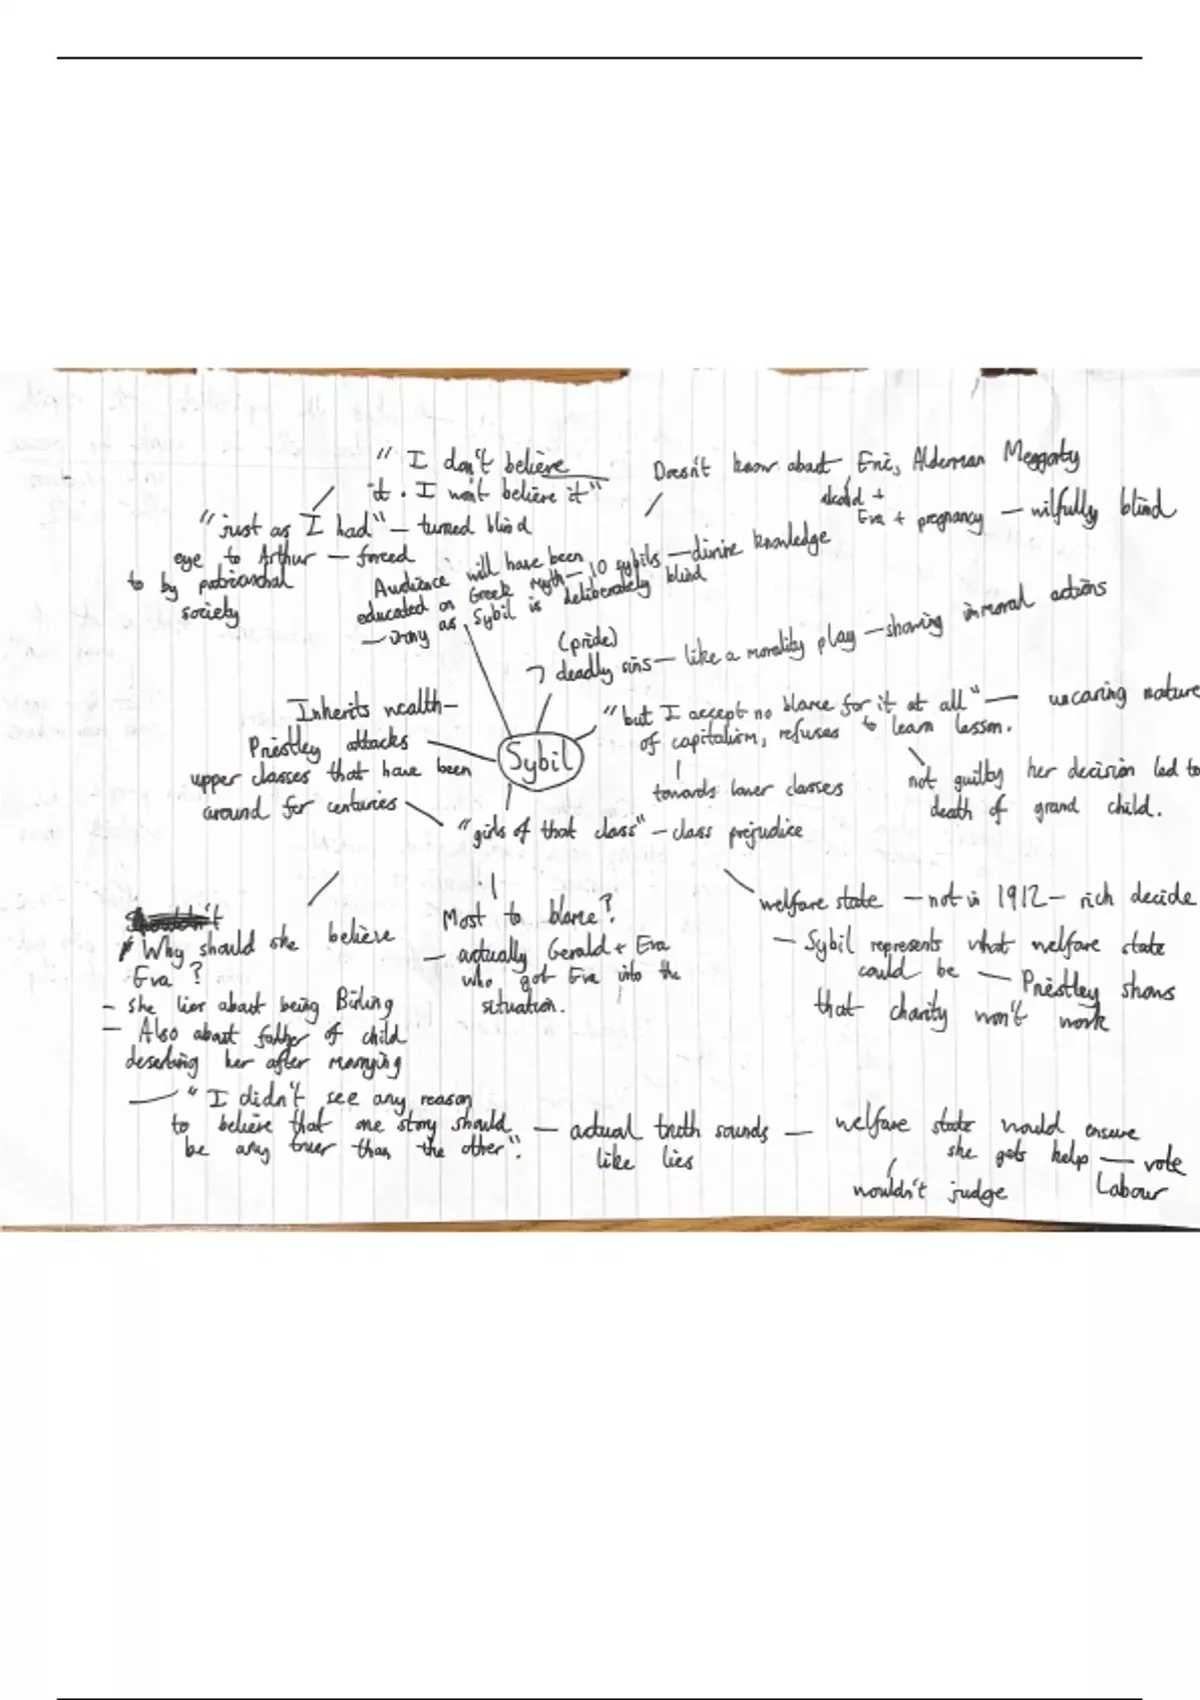 " I don't believe
it. I won't believe it"
"just as I had" — turned blind
eye to Arthur — forced
to by patriarchal
society
Doesn't know about Eric, Alderman Meggarty
alcohol +
Eva + pregnancy — wilfully blind
Audience will have been
educated on Greek myth — 10 sybils — divine knowledge
— irony as Sybil is deliberately blind
(pride)
7 deadly sins — like a morality play — showing immoral actions
Inherits wealth —
Priestley attacks
upper classes that have been
around for centuries
Sybil
"but I accept no blame for it at all" — uncaring nature
of capitalism, refuses to learn lesson.
towards lower classes
not guilty her decision led to
death of grand child.
"girls of that class" — class prejudice
Shouldn't
Why should she believe
Eva?
- she lies about being Birling
- Also about father of child
deserting her after marrying
— "I didn't see any reason
to believe that one story should
be any truer than the other". — actual truth sounds —
like lies
Most to blame?
— actually Gerald + Eva
who got Eva into the
situation.
welfare state — not in 1912 — rich decide
— Sybil represents what welfare state
could be — Priestley shows
that charity won't work
welfare state would ensure
she gets help — vote
Labour
wouldn't judge